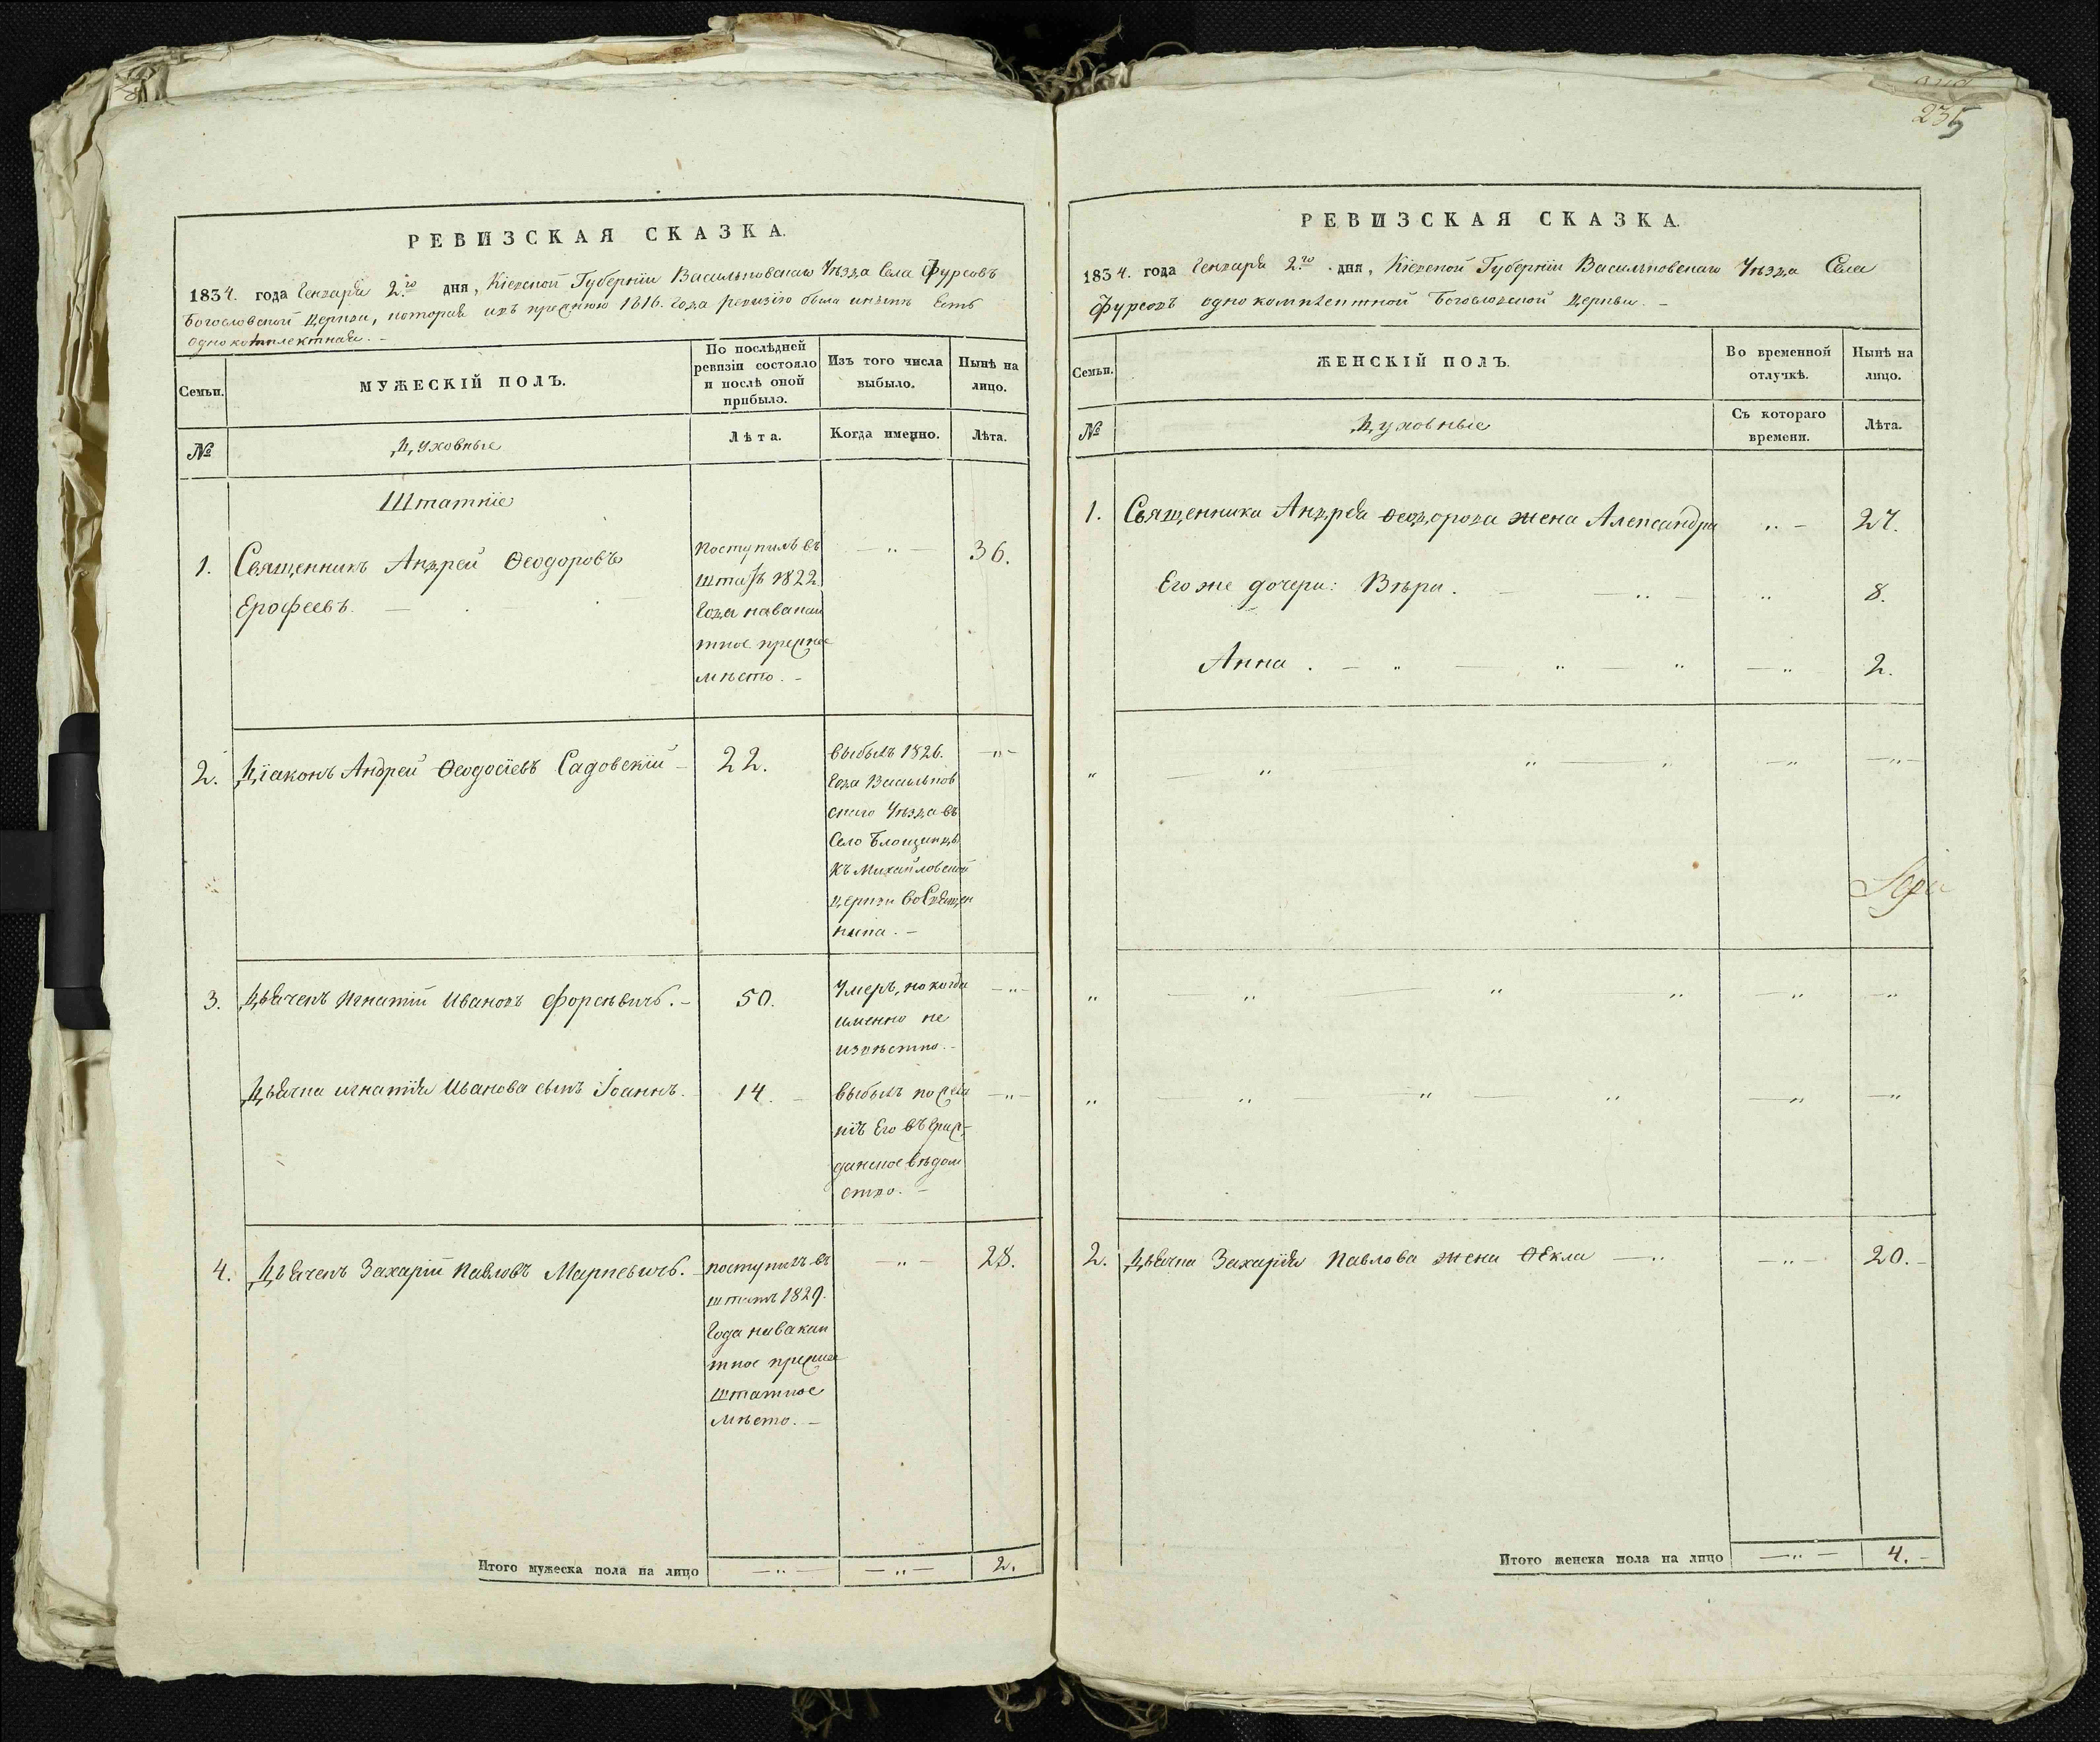 235
РЕВИЗСКАЯ СКАЗКА.
1834. года Генваря 2.го дня, Кіевской Губерніи Васильковскаго Уѣзда Села Фурсовъ
Богословской Церкви, которая какъ предъ 1816. года ревизію была и нынѣ есть
однокомплектная. –
Семьи.
МУЖЕСКІЙ ПОЛЪ.
По послѣдней
ревизіи состояло
и послѣ оной
прибыло.
Изъ того числа
выбыло.
Нынѣ на
лицо.
№
Духовные
Лѣта.
Когда именно.
Лѣта.
Штатніе
1. Священникъ Андрей Ѳеодоровъ
Ерофеевъ. –
Поступилъ въ
штатъ 1822.
года на вакан
тное
мѣсто. –
– „ –
36.
2. Діаконъ Андрей Ѳеодосіевъ Садовскій –
22.
выбылъ 1826.
года Васильков
скаго Уѣзда въ
Село Блощинцы
къ Михайловской
церкви во Священ
ника. –
– „ –
3. Дьячекъ Игнатій Ивановъ Форсѣвичъ. –
50.
Умеръ, но когда
именно не
извѣстно. –
– „ –
Дьячка Игнатія Иванова сынъ Іоаннъ.
14. –
выбылъ по
Его въ Граж-
данское вѣдом
ство. –
– „ –
4. Дьячекъ Захарій Павловъ Маркевичъ. –
поступилъ въ
штатъ 1829.
года на вакан
тное
штатное
мѣсто. –
– „ –
28.
Итого мужеска пола на лицо – „ – – „ – 2.
РЕВИЗСКАЯ СКАЗКА.
1834. года Генваря 2.го дня, Кіевской Губерніи Васильковскаго Уѣзда Села
Фурсовъ однокомплектной Богословской Церкви. –
Семьи.
ЖЕНСКІЙ ПОЛЪ.
Во временной
отлучкѣ.
Нынѣ на
лицо.
№
Духовные
Съ котораго
времени.
Лѣта.
1. Священника Андрея Ѳеодорова жена Александра „ – 27.
Его же дочери: Вѣра. – „ – „ 8.
Анна. – „ – „ – „ – „ 2.
„ – „ „ – „ – „ – „ –
„ – „ – „ „ – „ – „
„ – „ – „ – „ – „ – „
2. Дьячка Захарія Павлова жена Ѳекла – „ – „ – 20. –
Итого женска пола на лицо – „ – 4. –